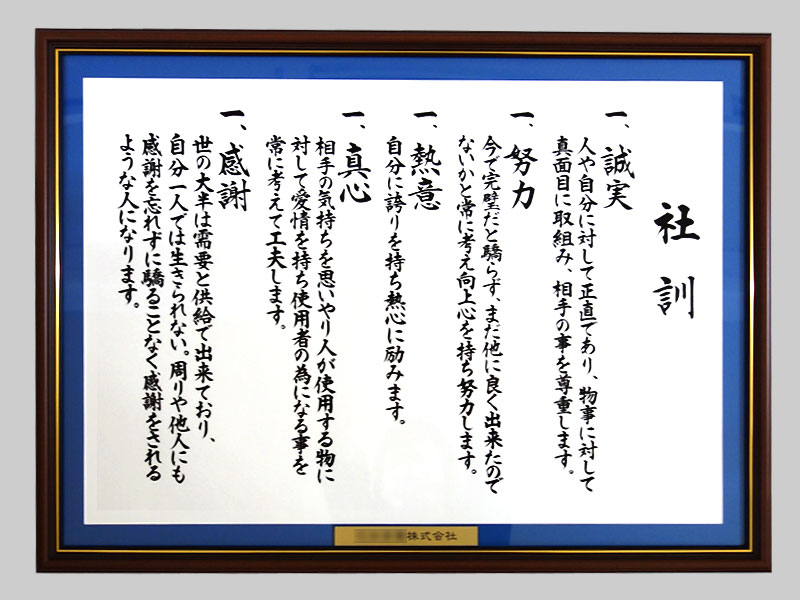 社訓
一、誠実
人や自分に対して正直であり、物事に対して
真面目に取組み、相手の事を尊重します。
一、努力
今で完璧だと驕らず、まだ他に良く出来たので
ないかと常に考え向上心を持ち努力します。
一、熱意
自分に誇りを持ち熱心に励みます。
一、真心
相手の気持ちを思いやり人が使用する物に
対して愛情を持ち使用者の為になる事を
常に考えて工夫します。
一、感謝
世の大半は需要と供給で出来ており、
自分一人では生きられない。周りや他人にも
感謝を忘れずに驕ることなく感謝をされる
ような人になります。
株式会社